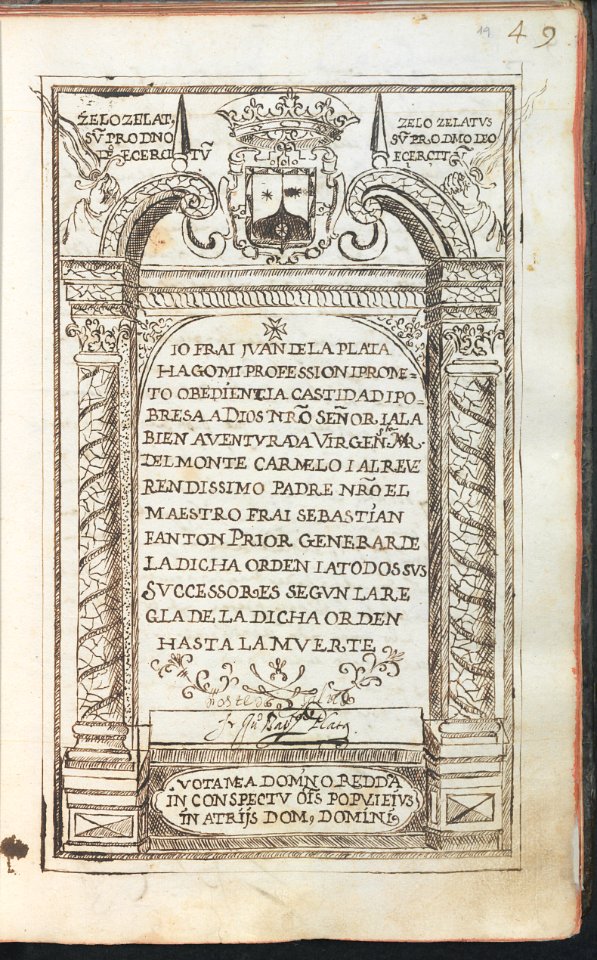 19 49
ZELO ZELATꝰ
SṼ PRO DNO
DꝰO ECERCITṼ
ZELO ZELATVS
SṼ PRO DMO DEO
EÇERÇITṼ
IO FRAI JVAN DE LA PLATA
HAGO MI PROFESSION I PROME-
TO OBEDIENTIA CASTIDAD I PO-
BRESA A DIOS NRÕ SEÑOR I A LA
BIEN AVENTVRADA VIRGEN MAR.
DEL MONTE CARMELO I AL REVE
RENDISSIMO PADRE NRÕ EL
MAESTRO FRAI SEBASTIAN
FANTON PRIOR GENERAR DE
LA DICHA ORDEN I A TODOS SVS
SVCCESSORES SEGVN LA RE
GLA DE LA DICHA ORDEN
HASTA LA MVERTE
VOTA MEA DOMINO REDDÃ
IN CONSPECTV OĨS POPVLI EIVS
IN ATRIJS DOMꝰ DOMINI